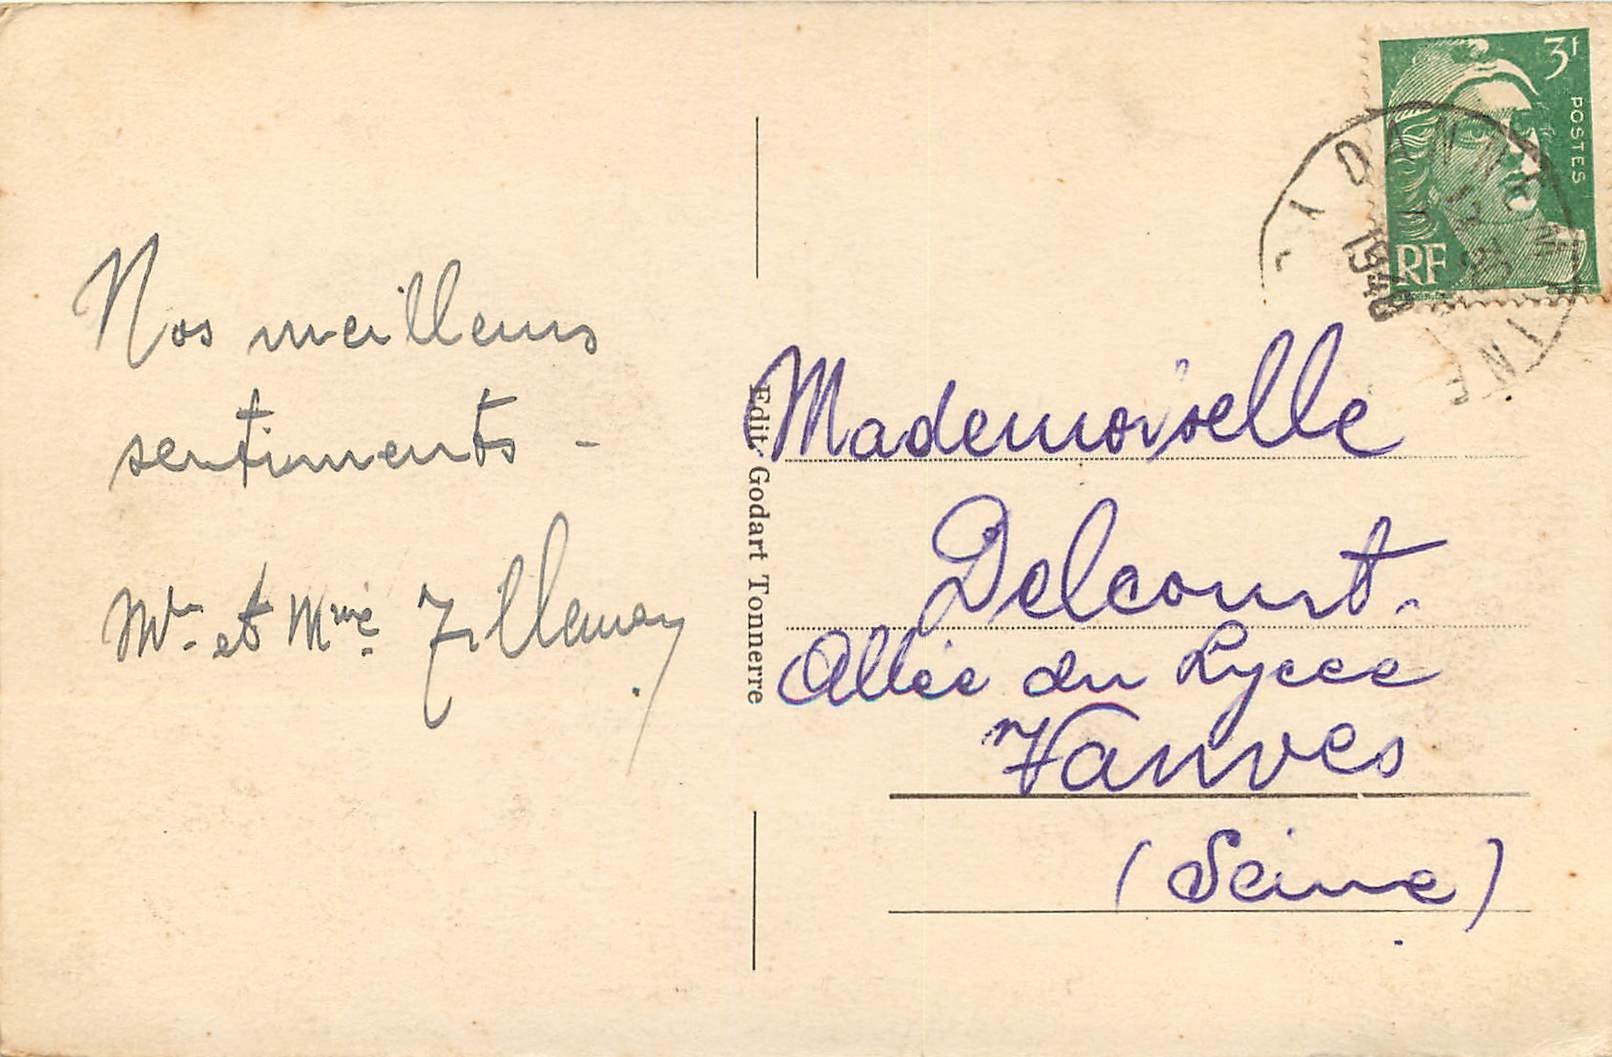 Nos meilleurs
sentiments -
Mr et Mme
Edit. Godart Tonnerre
3f
POSTES
RF
17 30
1948
Mademoiselle
Delcourt.
Allée du Lycée
Vanves
(Seine)